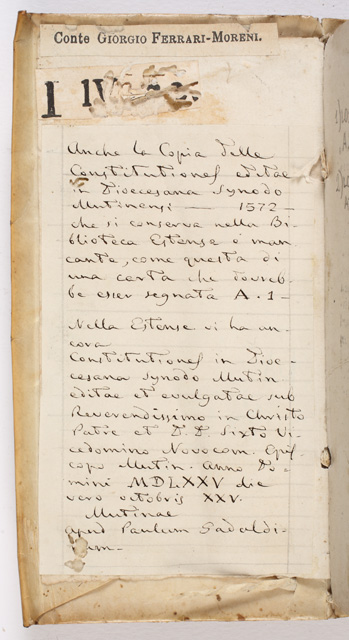 Conte GIORGIO FERRARI-MORENI.
I IV
Anche la Copia delle
Constitutiones editae
in Dioecesana Synodo
Mutinensi — 1572 —
che si conserva nella Bi-
blioteca Estense è man
cante, come questa di
una carta che dovreb-
be esser segnata A. 1 —
Nella Estense vi ha an-
cora
Constitutiones in Dioe-
cesana Synodo Mutin.
editae et evulgatae sub
Reverendissimo in Christo
Patre et D. D. Sixto Vi-
cedomino Novocom. Epis-
copo Mutin. Anno Do-
mini MDLXXV die
vero octobris XXV.
Mutinae
apud Paulum Gadaldi-
num —